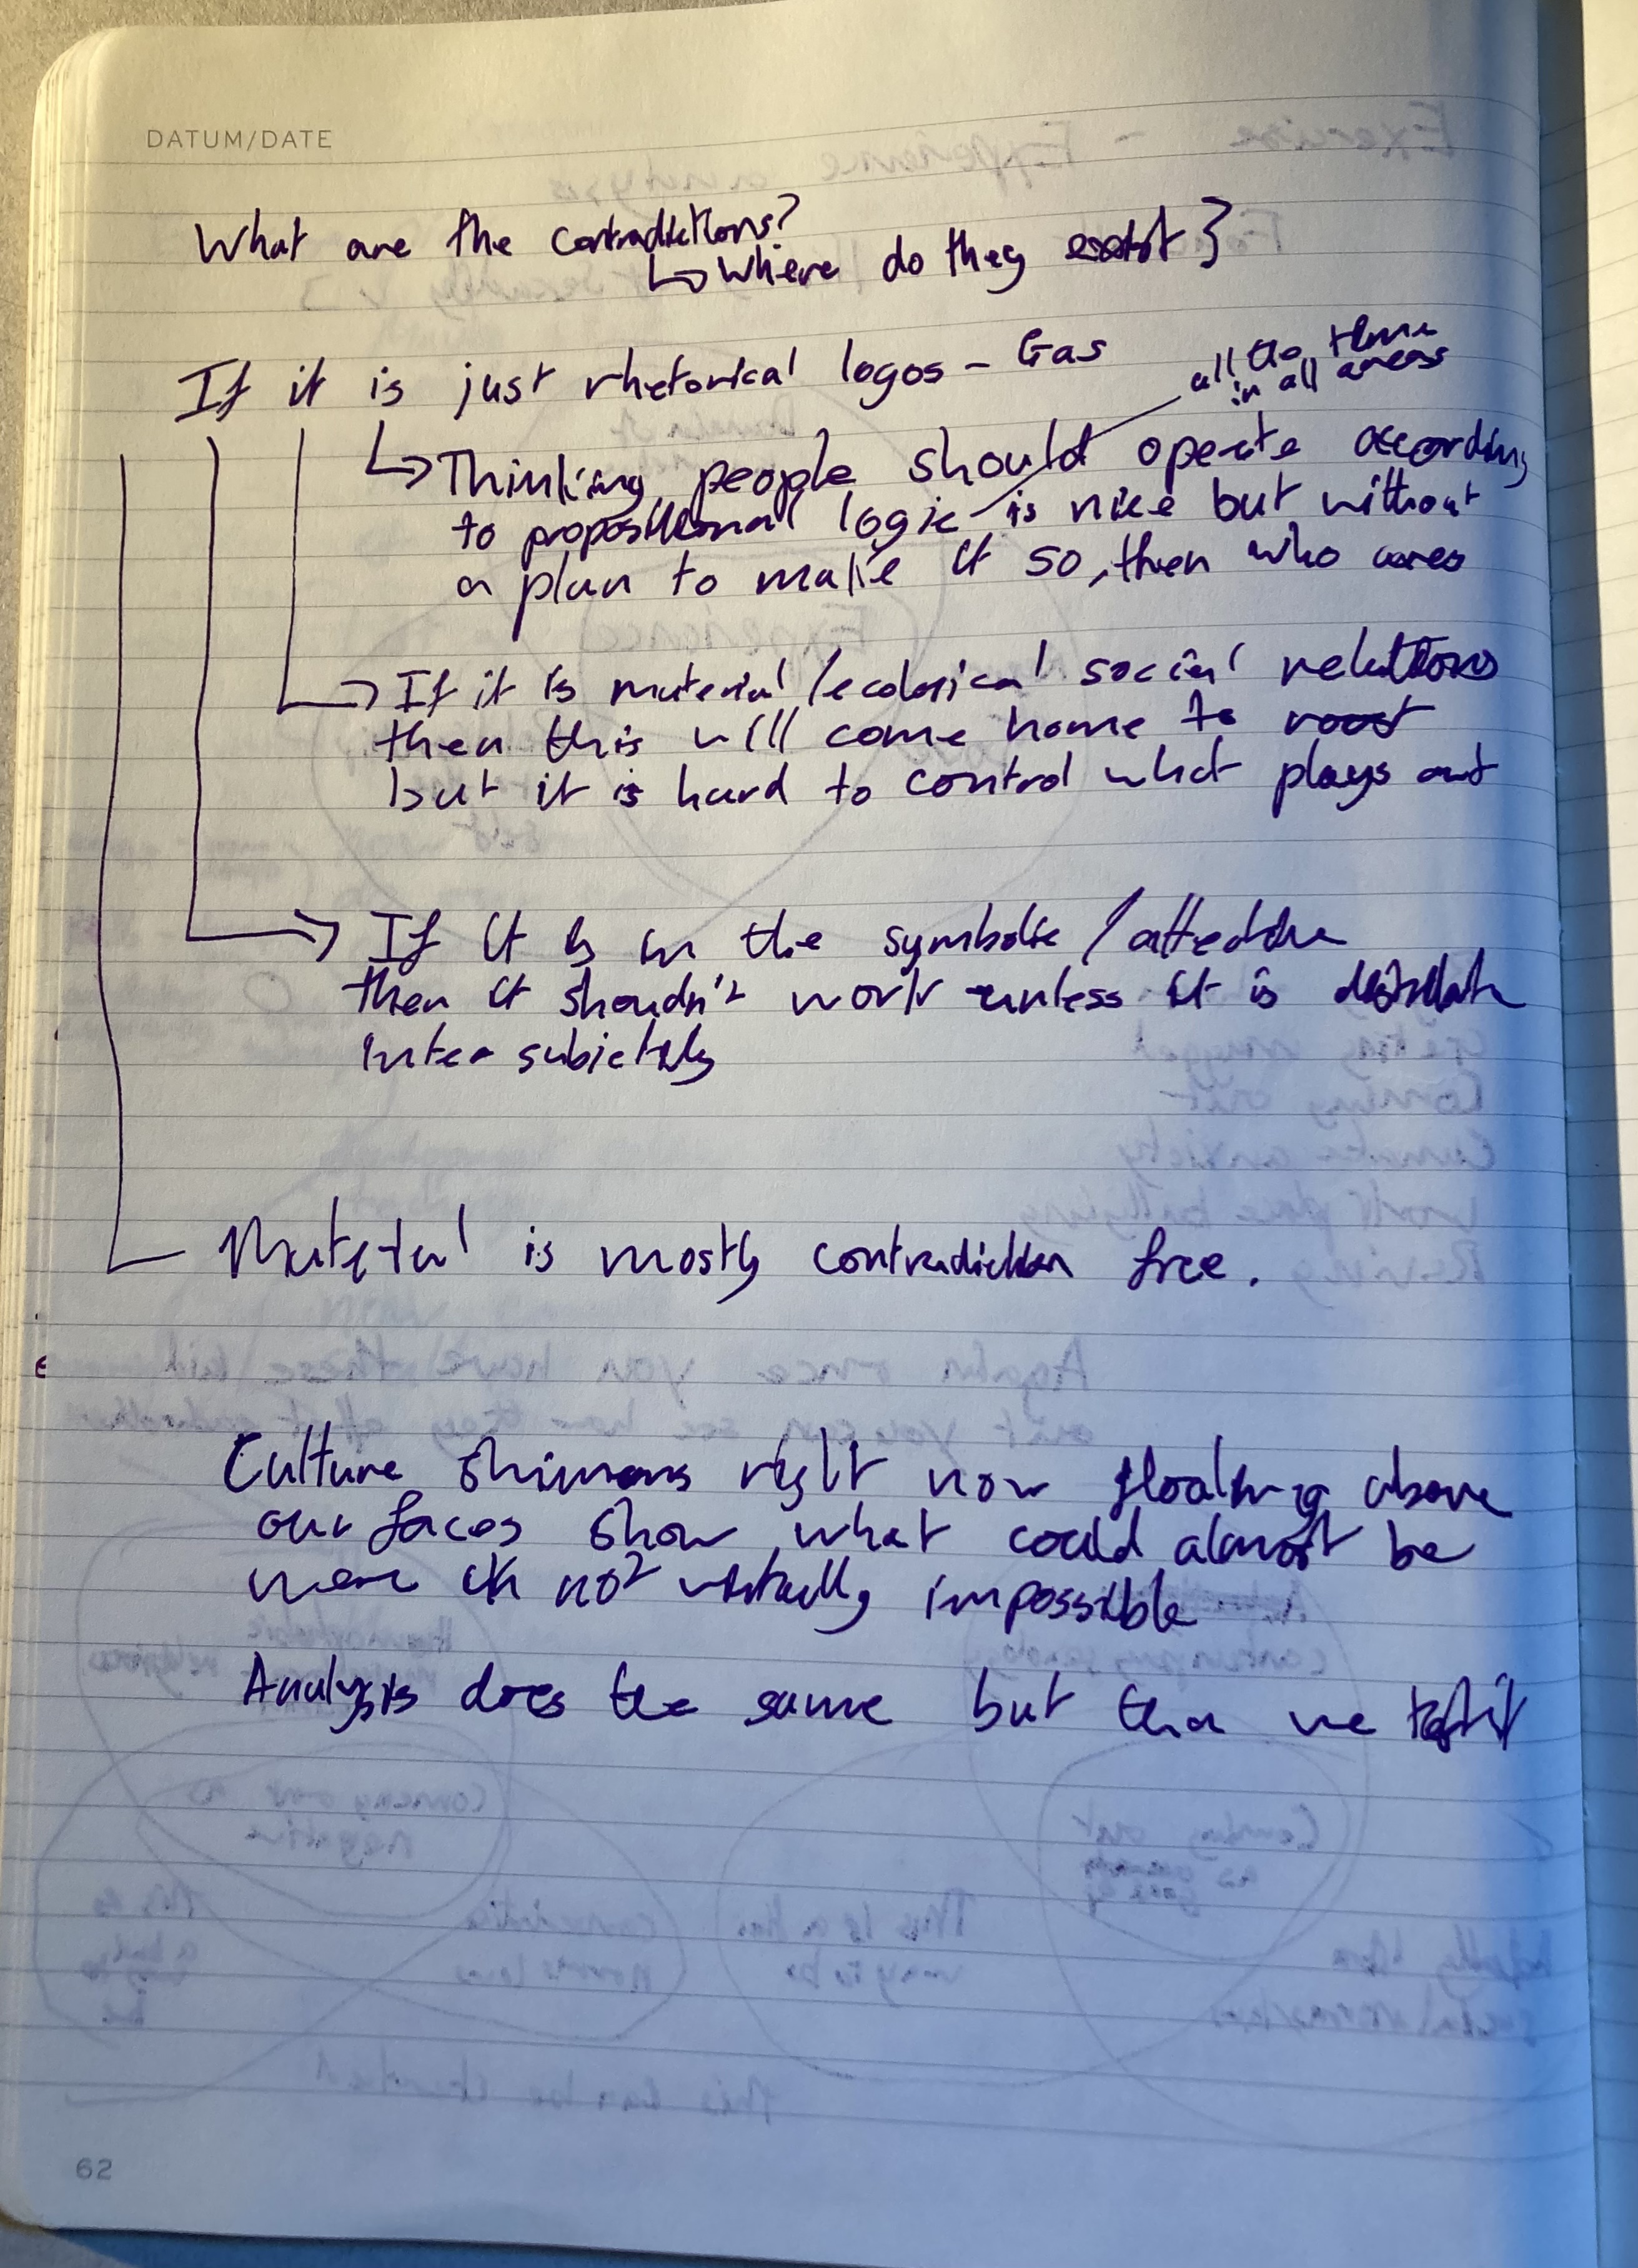 DATUM/DATE
What are the contradictions?
↳ Where do they exist }
If it is just rhetorical logos - Gas
all the time
in all areas
↳ Thinking people should operate according
to propositional logic is nice but without
a plan to make it so, then who cares
→ If it is material/ecological social relations
then this will come home to roost
but it is hard to control what plays out
→ If it is in the symbolic/affective
then it shoudn't work unless it is
inter subjectively
Material is mostly contradiction free.
Culture shimmers right now floating above
our faces show what could almost be
were it not virtually impossible
Analysis does the same but then we test it
62